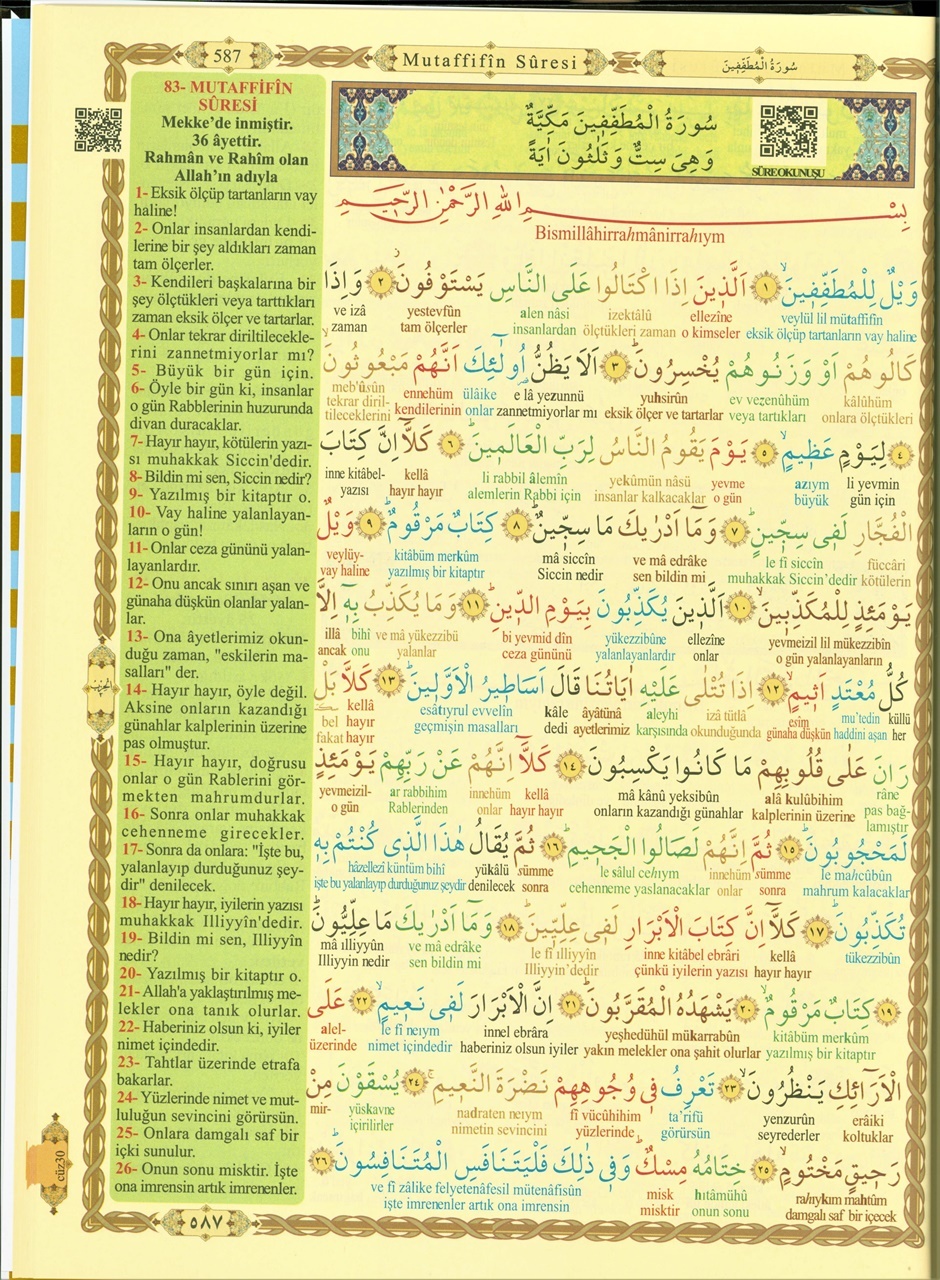 587
Mutaffifîn Sûresi
سُورَةُ الْمُطَفِّفِينَ
83- MUTAFFİFÎN
SÛRESİ
Mekke’de inmiştir.
36 âyettir.
Rahmân ve Rahîm olan
Allah’ın adıyla
1- Eksik ölçüp tartanların vay
haline!
2- Onlar insanlardan kendi-
lerine bir şey aldıkları zaman
tam ölçerler.
3- Kendileri başkalarına bir
şey ölçtükleri veya tarttıkları
zaman eksik ölçer ve tartarlar.
4- Onlar tekrar diriltilecekle-
rini zannetmiyorlar mı?
5- Büyük bir gün için.
6- Öyle bir gün ki, insanlar
o gün Rabblerinin huzurunda
divan duracaklar.
7- Hayır hayır, kötülerin yazı-
sı muhakkak Siccin'dedir.
8- Bildin mi sen, Siccin nedir?
9- Yazılmış bir kitaptır o.
10- Vay haline yalanlayan-
ların o gün!
11- Onlar ceza gününü yalan-
layanlardır.
12- Onu ancak sınırı aşan ve
günaha düşkün olanlar yalan-
lar.
13- Ona âyetlerimiz okun-
duğu zaman, "eskilerin ma-
salları" der.
14- Hayır hayır, öyle değil.
Aksine onların kazandığı
günahlar kalplerinin üzerine
pas olmuştur.
15- Hayır hayır, doğrusu
onlar o gün Rablerini gör-
mekten mahrumdurlar.
16- Sonra onlar muhakkak
cehenneme girecekler.
17- Sonra da onlara: "İşte bu,
yalanlayıp durduğunuz şey-
dir" denilecek.
18- Hayır hayır, iyilerin yazısı
muhakkak Illiyyîn'dedir.
19- Bildin mi sen, Illiyyîn
nedir?
20- Yazılmış bir kitaptır o.
21- Allah'a yaklaştırılmış me-
lekler ona tanık olurlar.
22- Haberiniz olsun ki, iyiler
nimet içindedir.
23- Tahtlar üzerinde etrafa
bakarlar.
24- Yüzlerinde nimet ve mut-
luluğun sevincini görürsün.
25- Onlara damgalı saf bir
içki sunulur.
26- Onun sonu misktir. İşte
ona imrensin artık imrenenler.
سُورَةُ الْمُطَفِّفِينَ مَكِّيَّةٌ
وَهِىَ سِتٌّ وَثَلٰثُونَ اٰيَةً
SÛRE OKUNUŞU
بِسْمِ اللهِ الرَّحْمٰنِ الرَّحِيمِ
Bismillâhirrahmânirrahıym
وَيْلٌ لِلْمُطَفِّفِينَۙ ١ اَلَّذِينَ اِذَا اكْتَالُوا عَلَى النَّاسِ يَسْتَوْفُونَۘ ٢ وَاِذَا
veylül lil mütaffifin ellezîne izektâlü alen nâsi yestevfûn ve izâ
eksik ölçüp tartanların vay haline o kimseler ölçtükleri zaman insanlardan tam ölçerler zaman
كَالُوهُمْ اَوْ وَزَنُوهُمْ يُخْسِرُونَۜ ٣ اَلَا يَظُنُّ اُولٰٓئِكَ اَنَّهُمْ مَبْعُوثُونَۙ
kâlûhüm ev vezenûhüm yuhsirûn e lâ yezunnü ülâike ennehüm meb'ûsûn
onlara ölçtükleri veya tartıkları eksik ölçer ve tartarlar zannetmiyorlar mı onlar kendilerinin tekrar diril-
tileceklerini
٤ لِيَوْمٍ عَظِيمٍۙ ٥ يَوْمَ يَقُومُ النَّاسُ لِرَبِّ الْعَالَمِينَۜ ٦ كَلَّٓا اِنَّ كِتَابَ
li yevmin azıym yevme yekûmün nâsü li rabbil âlemîn kellâ inne kitâbel-
gün için büyük o gün insanlar kalkacaklar alemlerin Rabbi için hayır hayır yazısı
الْفُجَّارِ لَفِى سِجِّينٍۜ ٧ وَمَٓا اَدْرٰيكَ مَا سِجِّينٌۜ ٨ كِتَابٌ مَرْقُومٌۜ ٩ وَيْلٌ
füccâri le fî siccîn ve mâ edrâke mâ siccîn kitâbüm merkûm veylüy-
kötülerin muhakkak Siccin’dedir sen bildin mi Siccin nedir yazılmış bir kitaptır vay haline
يَوْمَئِذٍ لِلْمُكَذِّبِينَۙ ١٠ اَلَّذِينَ يُكَذِّبُونَ بِيَوْمِ الدِّينِۜ ١١ وَمَا يُكَذِّبُ بِهِٓ اِلَّا
yevmeizil lil mükezzibîn ellezine yükezzibûne bi yevmid dîn ve mâ yükezzibü bihî illâ
o gün yalanlayanların onlar yalanlayanlardır ceza gününü yalanlar onu ancak
كُلُّ مُعْتَدٍ اَثِيمٍۙ ١٢ اِذَا تُتْلٰى عَلَيْهِ اٰيَاتُنَا قَالَ اَسَاطِيرُ الْاَوَّلِينَۜ ١٣ كَلَّا بَلْ
küllü mu’tedin esîm izâ tütlâ aleyhi âyâtünâ kâle esâtıyrul evvelîn kellâ bel
her haddini aşan günaha düşkün okunduğunda karşısında ayetlerimiz dedi geçmişin masalları hayır fakat hayır
رَانَ عَلٰى قُلُوبِهِمْ مَا كَانُوا يَكْسِبُونَ ١٤ كَلَّٓا اِنَّهُمْ عَنْ رَبِّهِمْ يَوْمَئِذٍ
râne alâ kulûbihim mâ kânû yeksibûn kellâ innehüm ar rabbihim yevmeizil-
pas bağ-
lamıştır kalplerinin üzerine onların kazandığı günahlar hayır hayır onlar Rablerinden o gün
لَمَحْجُوبُونَۜ ١٥ ثُمَّ اِنَّهُمْ لَصَالُوا الْجَحِيمِۜ ١٦ ثُمَّ يُقَالُ هٰذَا الَّذِى كُنْتُمْ بِهِ
le mahcûbûn sümme innehüm le sâlul cehıym sümme yükâlü hâzellezî küntüm bihî
mahrum kalacaklar sonra onlar cehenneme yaslanacaklar sonra denilecek işte bu yalanlayıp durduğunuz şeydir
تُكَذِّبُونَۜ ١٧ كَلَّٓا اِنَّ كِتَابَ الْاَبْرَارِ لَفِى عِلِّيِّينَۜ ١٨ وَمَٓا اَدْرٰيكَ مَا عِلِّيُّونَۜ
tükezzibûn kellâ inne kitâbel ebrâri le fî ılliyyîn ve mâ edrâke mâ ılliyyûn
hayır hayır çünkü iyilerin yazısı Illiyyîn’dedir sen bildin mi Illiyyin nedir
١٩ كِتَابٌ مَرْقُومٌۙ ٢٠ يَشْهَدُهُ الْمُقَرَّبُونَۜ ٢١ اِنَّ الْاَبْرَارَ لَفِى نَعِيمٍۙ ٢٢ عَلَى
kitâbüm merkûm yeşhedühül mükarrabûn innel ebrâra le fî neıym alel-
yazılmış bir kitaptır yakın melekler ona şahit olurlar haberiniz olsun iyiler nimet içindedir üzerinde
الْاَرَٓائِكِ يَنْظُرُونَۙ ٢٣ تَعْرِفُ فِى وُجُوهِهِمْ نَضْرَةَ النَّعِيمِۚ ٢٤ يُسْقَوْنَ مِنْ
erâiki yenzurûn ta’rifü fî vücûhihim nadraten neıym yüskavne mir-
koltuklar seyrederler görürsün yüzlerinde nimetin sevincini içirilirler
رَحِيقٍ مَخْتُومٍۙ ٢٥ خِتَامُهُ مِسْكٌۜ وَفِى ذٰلِكَ فَلْيَتَنَافَسِ الْمُتَنَافِسُونَۜ ٢٦
rahıykım mahtûm hıtâmühû misk ve fî zâlike felyetenâfesil mütenâfisûn
damgalı saf bir içecek onun sonu misktir işte imrenenler artık ona imrensin
cüz30
٥٨٧